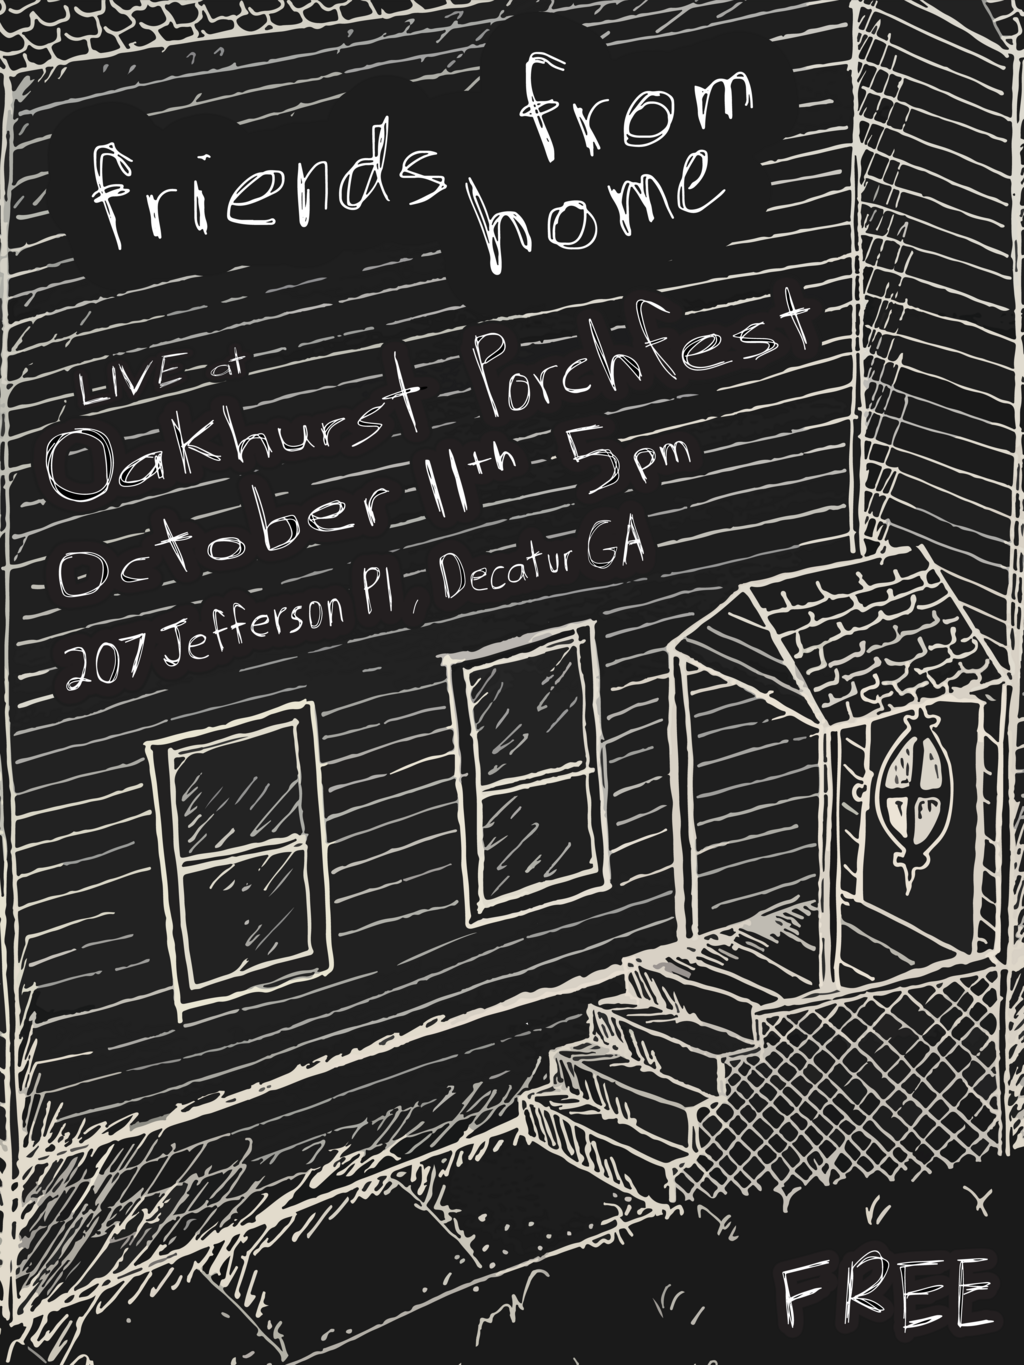 friends from
home
LIVE at
Oakhurst Porchfest
October 11th 5pm
207 Jefferson Pl, Decatur GA
FREE